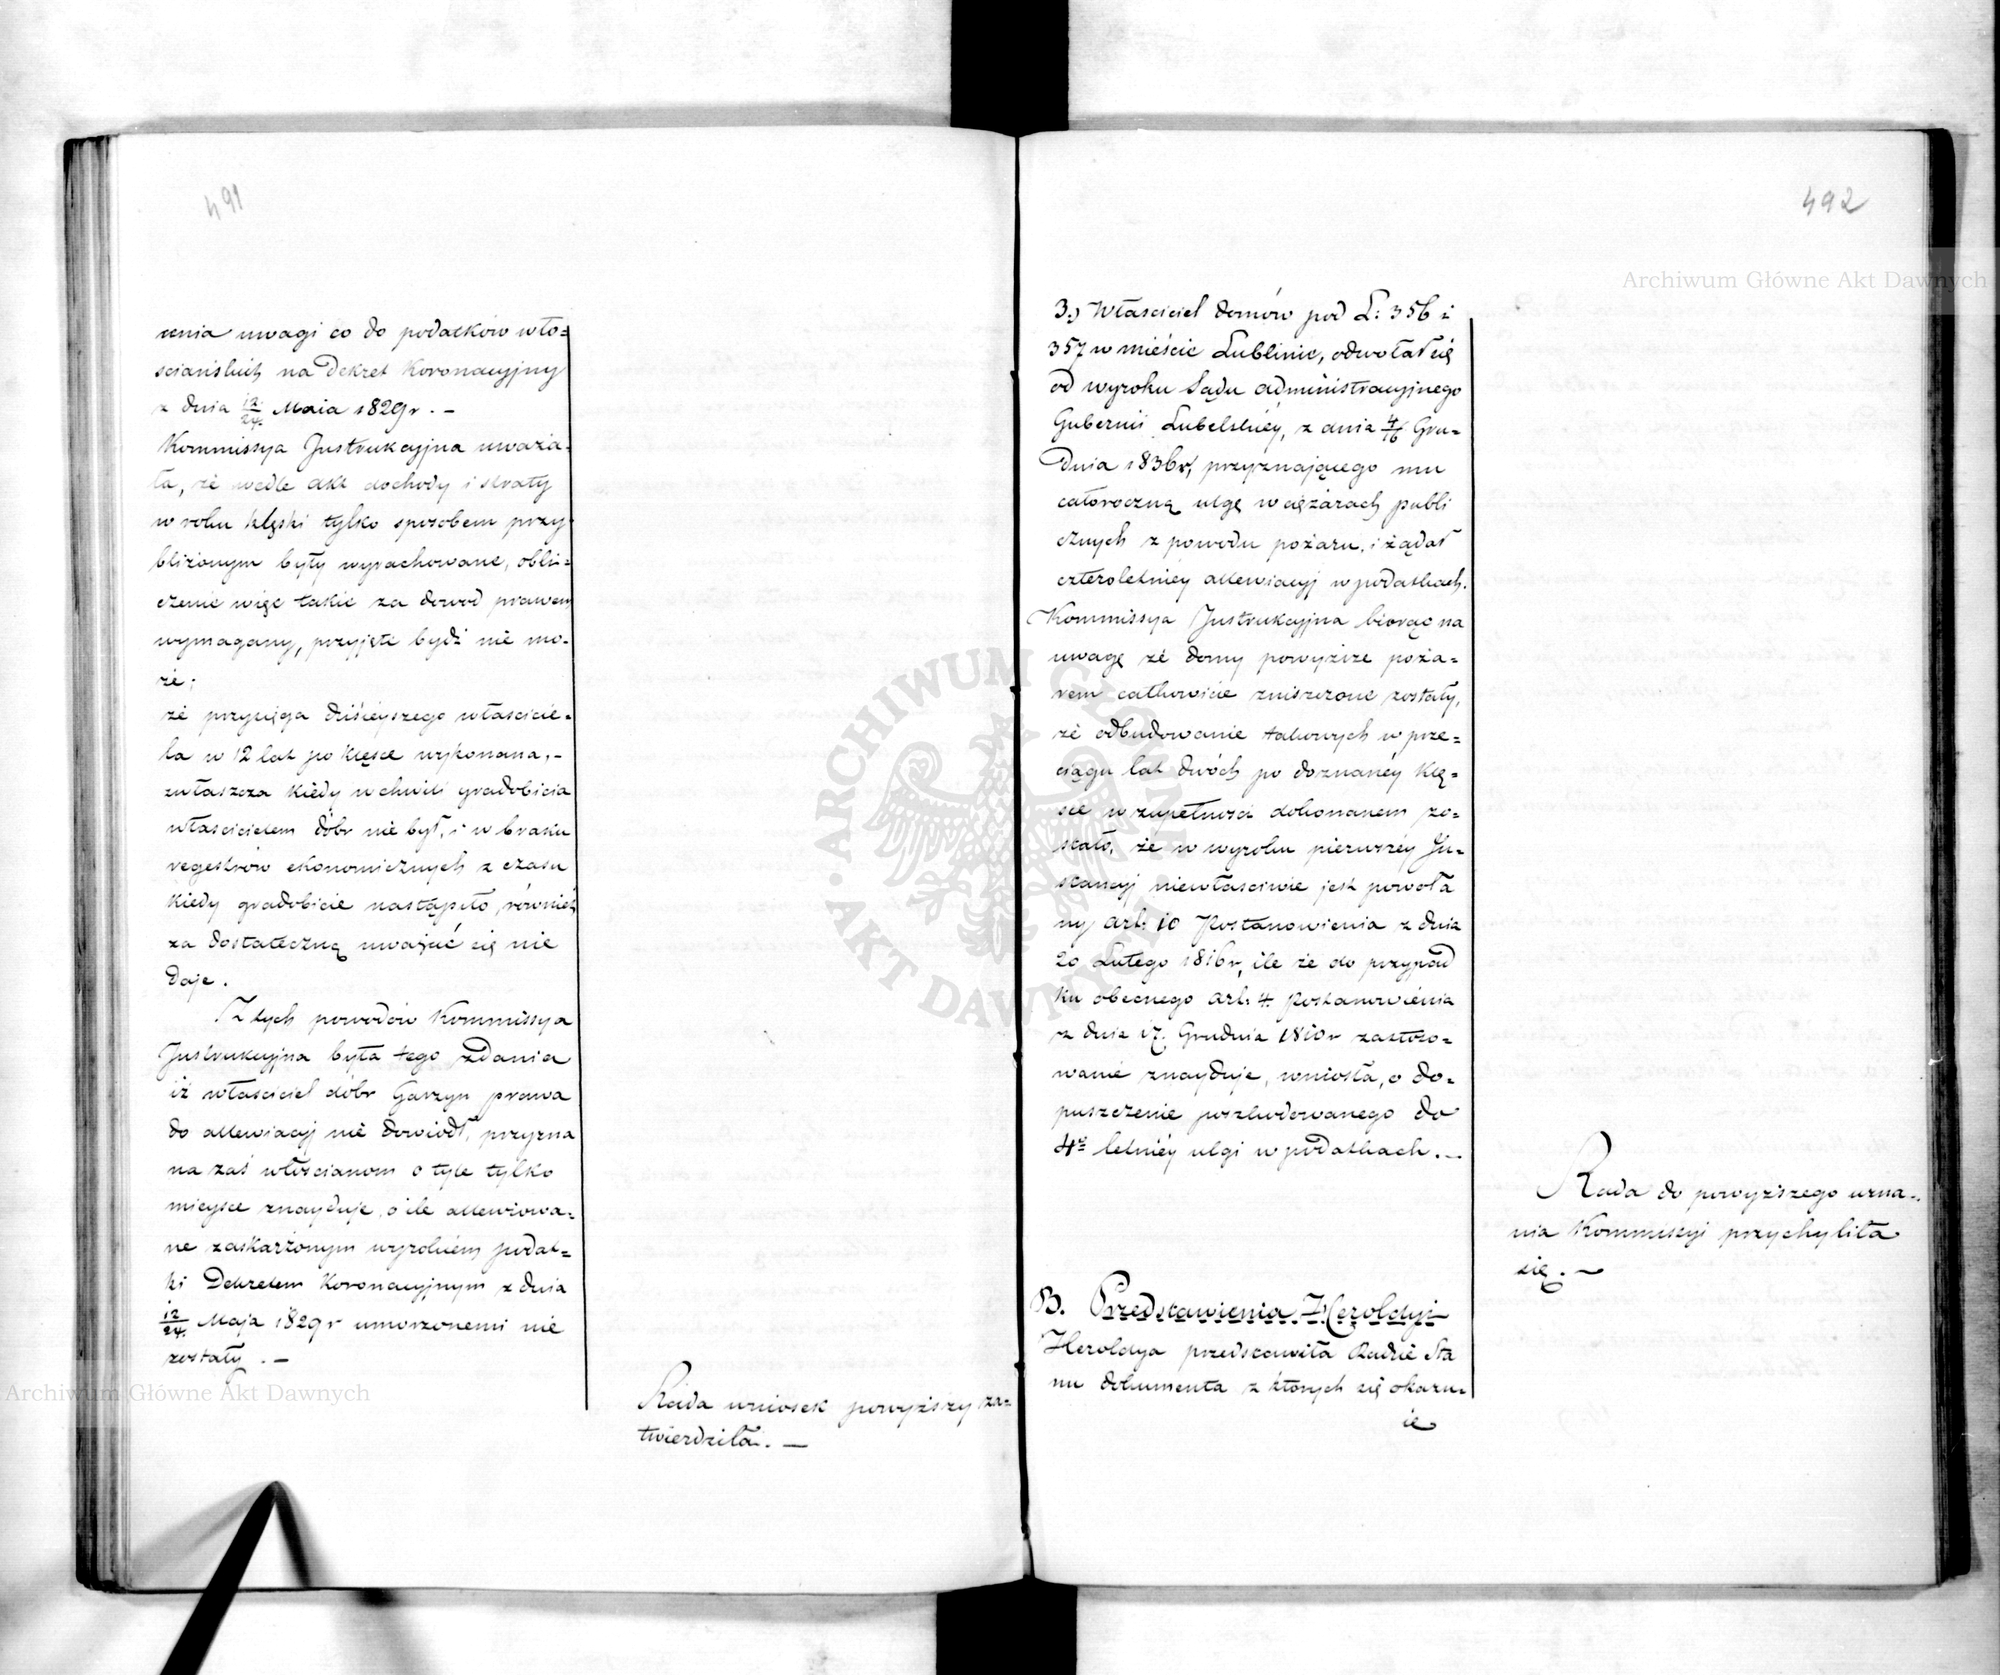 491
cenia uwagi co do podatków wło=
sciańskich na Dekret Koronacyjny
z dnia 12/24. Maia 1829 r. –
Kommissya Instrukcyjna uważa-
ła, że wedle akt dochody i straty
w roku klęski tylko sposobem przy
bliżonym były wyrachowane, obli=
czenie więc takie za dowod prawem
wymagany, przyjęte bydź nie mo-
że;
że przysięga dzisieyszego właścicie-
la w 12 lat po klęsce wykonana, –
zwłaszcza kiedy w chwili gradobicia
właścicielem dóbr nie był, i w braku
regestrów ekonomicznych z czasu
kiedy gradobicie nastąpiło, również
za dostateczną uważać się nie
daje.
Z tych powodów Kommissya
Instrukcyjna była tego zdania
iż właściciel dóbr Garzyn prawa
do allewiacyj nie dowiodł, przyzna
na zaś włościanom o tyle tylko
mieysce znayduje, o ile allewiowa-
ne zaskarżonym wyrokiem podat=
ki Dekretem Koronacyjnym z dnia
12/24. Maja 1829 r umorzonemi nie
zostały. –
Rada wniosek powyższy za=
twierdziła. –
492
3.) Właściciel domów pod L: 356 i
357 w mieście Lublinie, odwołał się
od wyroku Sądu administracyjnego
Gubernii Lubelskiéy, z dnia 4/16 Gru-
dnia 1836 r, przyznającego mu
całoroczną ulgę w ciężarach publi
cznych z powodu pożaru, i żądał
czteroletniéy allewiacyj w podatkach.
Kommissya Instrukcyjna biorąc na
uwagę że domy powyższe poża-
rem całkowicie zniszczone zostały,
że odbudowanie takowych w prze=
ciągu lat dwóch po doznanéy klę-
sce w zupełności dokonanem zo-
stało, że w wyroku pierwszéy In-
stancyj niewłaściwie jest powoła
ny art: 10 Postanowienia z dnia
20 Lutego 1816 r, ile że do przypad
ku obecnego art: 4. Postanowienia
z dnia 17. Grudnia 1810 r zastoso-
wanie znayduje, wniosła, o do-
puszczenie poszkodowanego do
4o letniéy ulgi w podatkach. –
Rada do powyższego uzna-
nia Kommissyi przychyliła
się. –
B. Przedstawienia Heroldyi
Heroldya przedstawiła Radzie Sta
nu dokumenta z których się okazu-
ie
Archiwum Główne Akt Dawnych
ARCHIWUM GŁÓWNE AKT DAWNYCH
Archiwum Główne Akt Dawnych